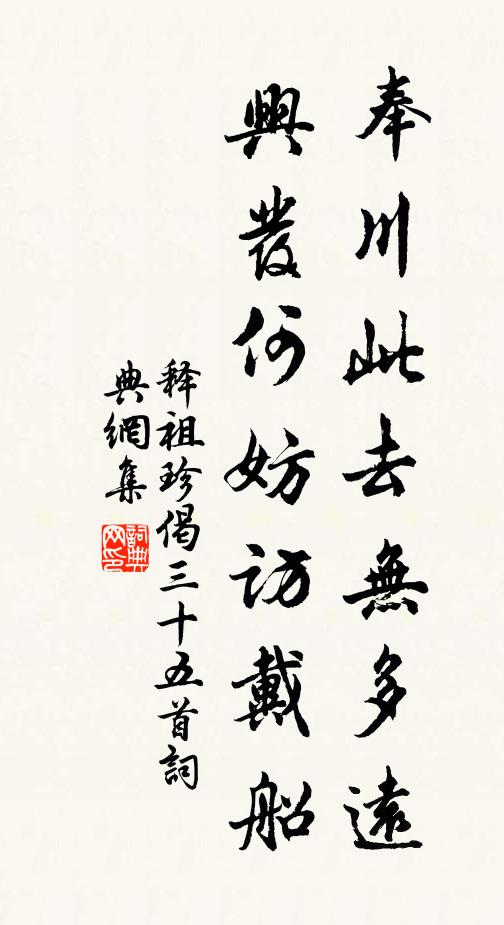 奉川此去無多遠
興發何妨訪戴船
释祖珍偈三十五首詞
典網集
詞典
网印